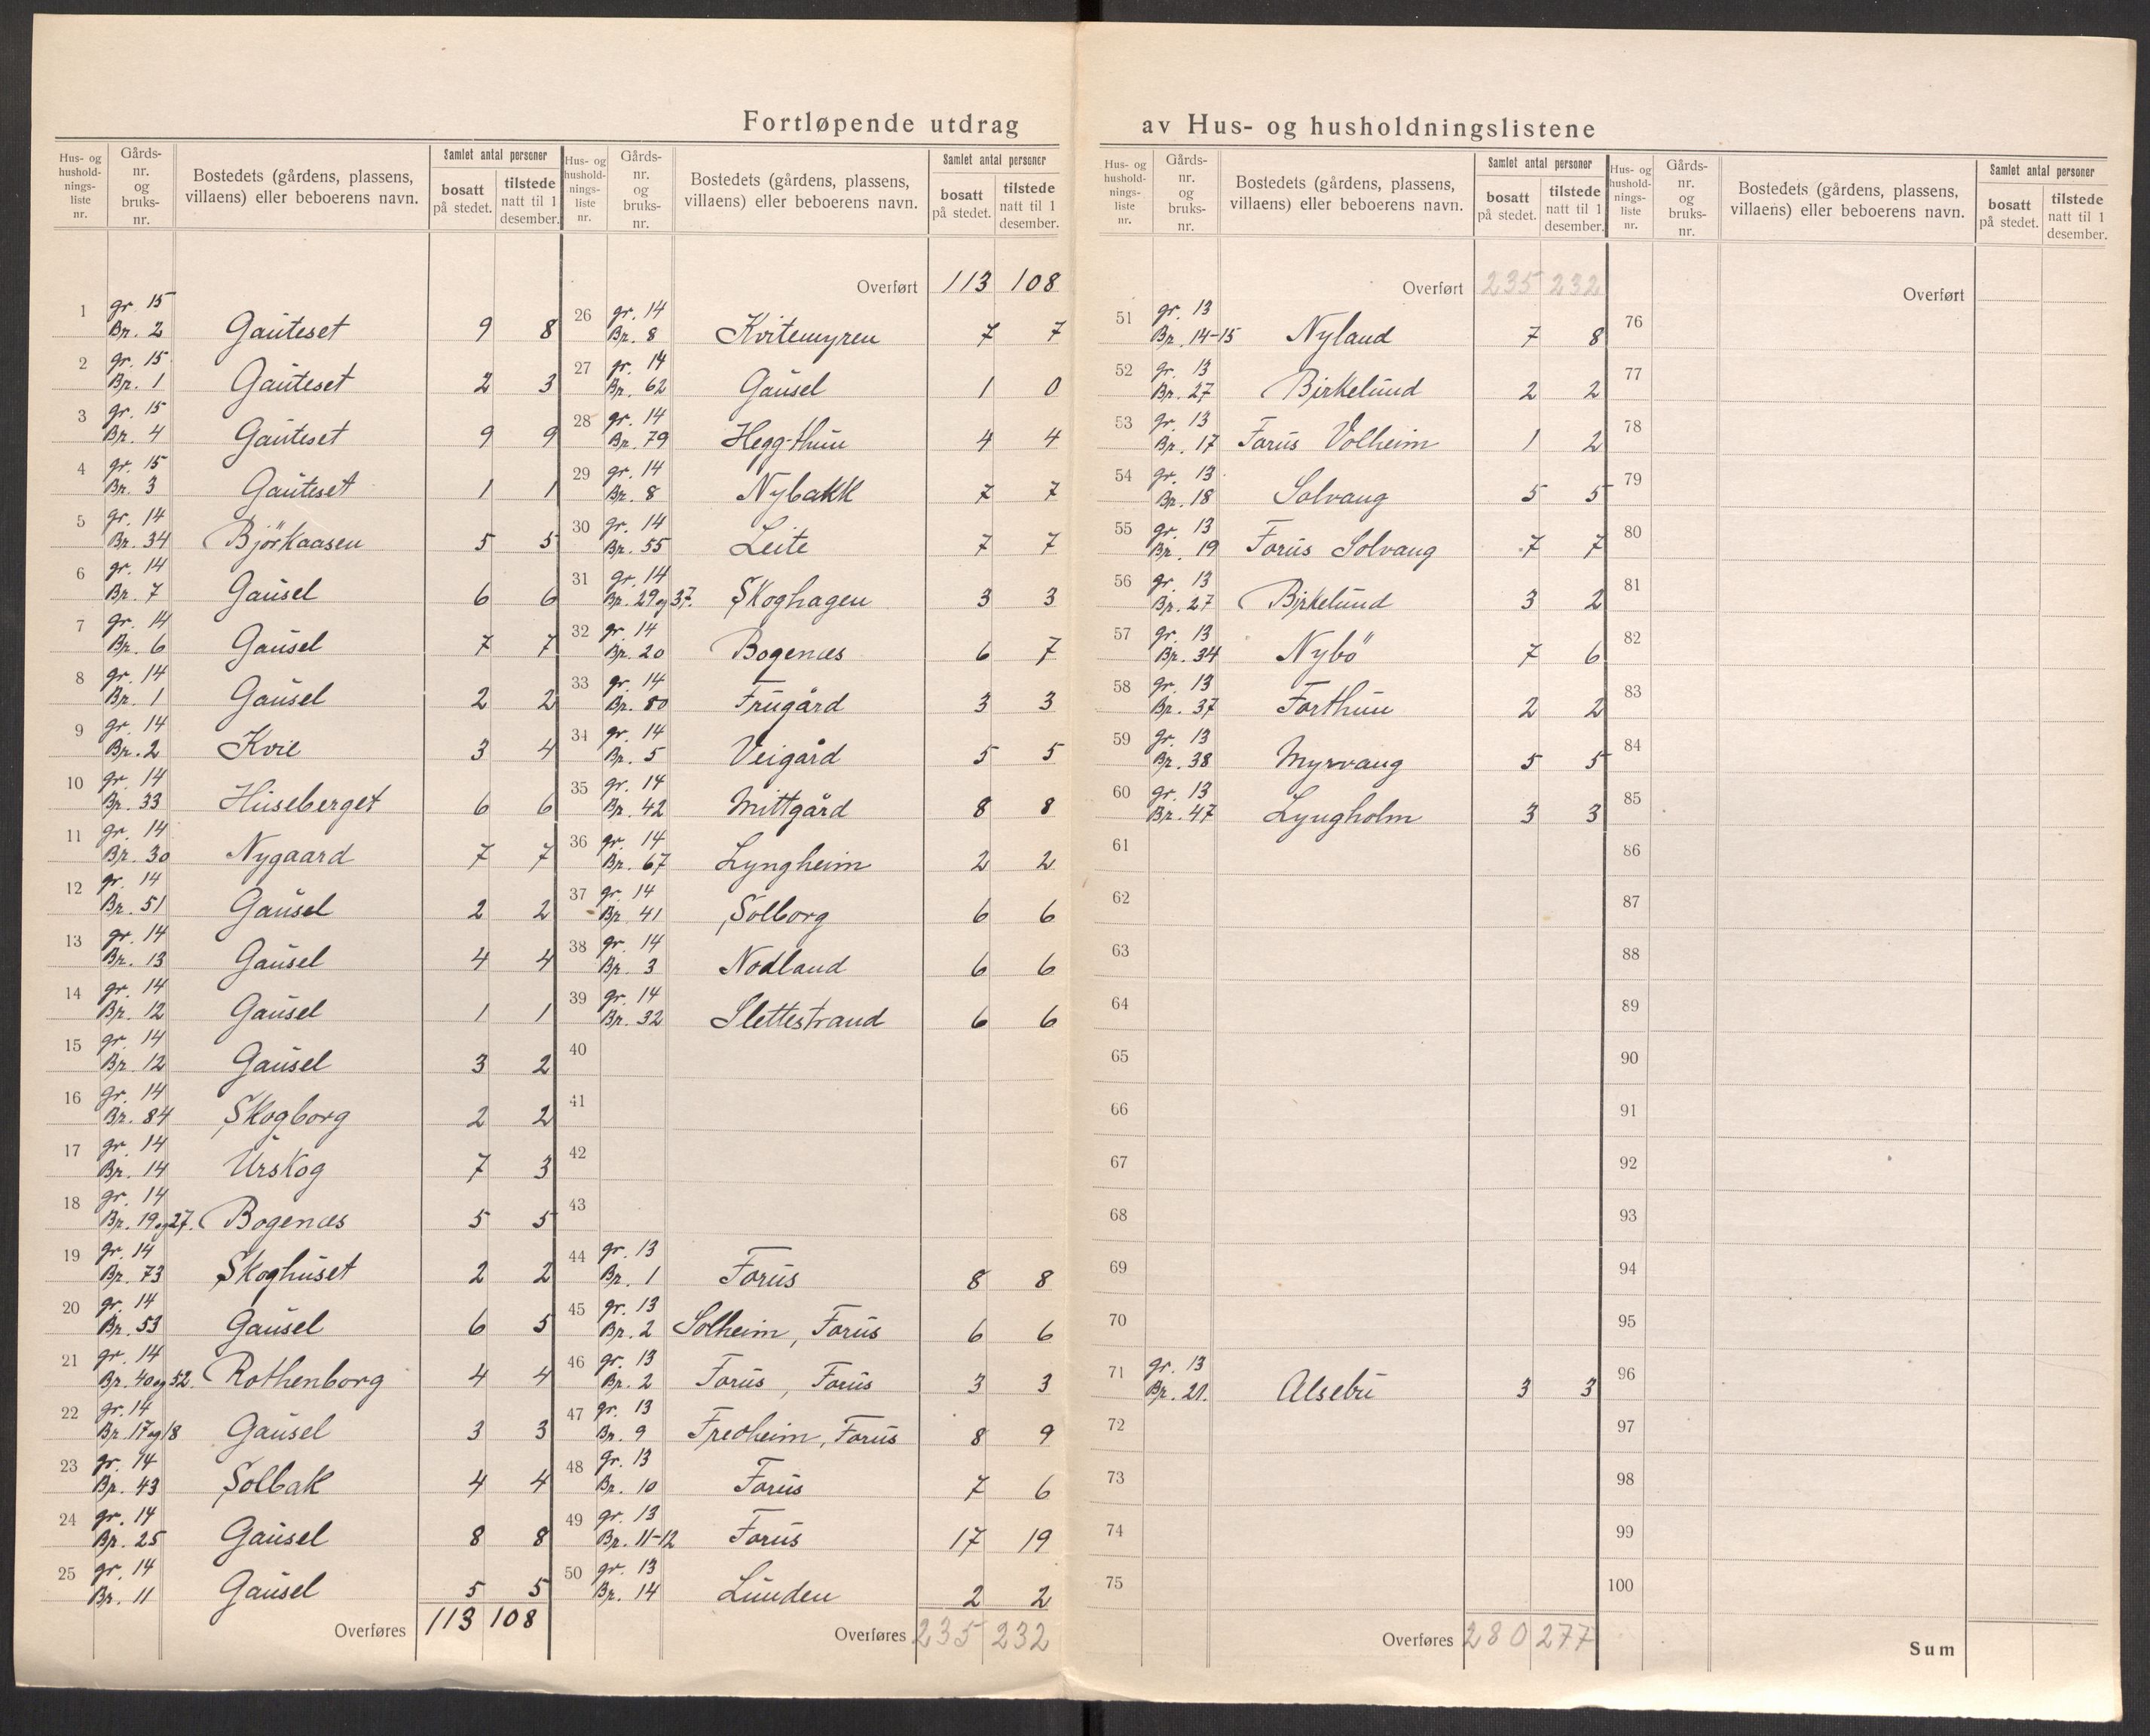 Fortløpende utdrag av Hus- og husholdningslistene
Hus- og hushold-nings-liste nr. Gårds-nr. og bruks-nr. Bostedets (gårdens, plassens, villaens) eller beboerens navn. Samlet antal personer bosatt på stedet. tilstede natt til 1 desember.
1 gr. 15 Br. 2 Gauteset 9 8
2 gr. 15 Br. 1 Gauteset 2 3
3 gr. 15 Br. 4 Gauteset 9 9
4 gr. 15 Br. 3 Gauteset 1 1
5 gr. 14 Br. 34 Björkaasen 5 5
6 gr. 14 Br. 7 Gausel 6 6
7 gr. 14 Br. 6 Gausel 7 7
8 gr. 14 Br. 1 Gausel 2 2
9 gr. 14 Br. 2 Kvie 3 4
10 gr. 14 Br. 33 Huseberget 6 6
11 gr. 14 Br. 30 Nygaard 7 7
12 gr. 14 Br. 51 Gausel 2 2
13 gr. 14 Br. 13 Gausel 4 4
14 gr. 14 Br. 12 Gausel 1 1
15 gr. 14 Br. 12 Gausel 3 2
16 gr. 14 Br. 84 Skogborg 2 2
17 gr. 14 Br. 14 Urskog 7 3
18 gr. 14 Br. 19 og 27. Bogenæs 5 5
19 gr. 14 Br. 73 Skoghuset 2 2
20 gr. 14 Br. 53 Gausel 6 5
21 gr. 14 Br. 40 og 52. Rothenborg 4 4
22 gr. 14 Br. 17 og 18 Gausel 3 3
23 gr. 14 Br. 43 Solbak 4 4
24 gr. 14 Br. 25 Gausel 8 8
25 gr. 14 Br. 11 Gausel 5 5
Overføres 113 108
Hus- og hushold-nings-liste nr. Gårds-nr. og bruks-nr. Bostedets (gårdens, plassens, villaens) eller beboerens navn. Samlet antal personer bosatt på stedet. tilstede natt til 1 desember.
Overført 113 108
26 gr. 14 Br. 8 Kvitemyren 7 7
27 gr. 14 Br. 62 Gausel 1 0
28 gr. 14 Br. 79 Hegg-thun 4 4
29 gr. 14 Br. 8 Nybakk 7 7
30 gr. 14 Br. 55 Leite 7 7
31 gr. 14 Br. 29 og 37. Skoghagen 3 3
32 gr. 14 Br. 20 Bogenæs 6 7
33 gr. 14 Br. 80 Frugård 3 3
34 gr. 14 Br. 5 Veigård 5 5
35 gr. 14 Br. 42 Mittgård 8 8
36 gr. 14 Br. 67 Lyngheim 2 2
37 gr. 14 Br. 41 Solborg 6 6
38 gr. 14 Br. 3 Nodland 6 6
39 gr. 14 Br. 32 Slettestrand 6 6
40
41
42
43
44 gr. 13 Br. 1 Forus 8 8
45 gr. 13 Br. 2 Solheim, Forus 6 6
46 gr. 13 Br. 2 Forus, Forus 3 3
47 gr. 13 Br. 9 Fredheim, Forus 8 9
48 gr. 13 Br. 10 Forus 7 6
49 gr. 13 Br. 11-12 Forus 17 19
50 gr. 13 Br. 14 Lunden 2 2
Overføres 235 232
Hus- og hushold-nings-liste nr. Gårds-nr. og bruks-nr. Bostedets (gårdens, plassens, villaens) eller beboerens navn. Samlet antal personer bosatt på stedet. tilstede natt til 1 desember.
Overført 235 232
51 gr. 13 Br. 14-15 Nyland 7 8
52 gr. 13 Br. 27 Birkelund 2 2
53 gr. 13 Br. 17 Forus Volheim 1 2
54 gr. 13 Br. 18 Solvang 5 5
55 gr. 13 Br. 19 Forus Solvang 7 7
56 gr. 13 Br. 27 Birkelund 3 2
57 gr. 13 Br. 34 Nybö 7 6
58 gr. 13 Br. 37 Forthun 2 2
59 gr. 13 Br. 38 Myrvang 5 5
60 gr. 13 Br. 47 Lyngholm 3 3
61
62
63
64
65
66
67
68
69
70
71 gr. 13 Br. 21. Alsebu 3 3
72
73
74
75
Overføres 280 277
Hus- og hushold-nings-liste nr. Gårds-nr. og bruks-nr. Bostedets (gårdens, plassens, villaens) eller beboerens navn. Samlet antal personer bosatt på stedet. tilstede natt til 1 desember.
Overført
76
77
78
79
80
81
82
83
84
85
86
87
88
89
90
91
92
93
94
95
96
97
98
99
100
Sum